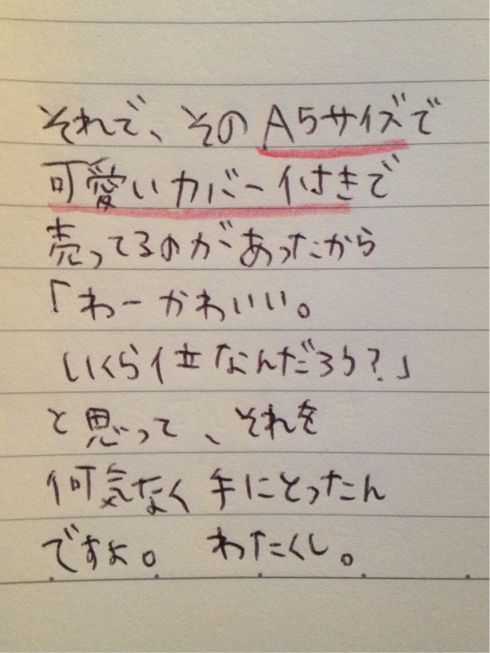 それで、そのA5サイズで
可愛いカバー付きで
売ってるのがあったから
「わーかわいい。
いくら位なんだろう?」
と思って、それを
何気なく手にとったん
ですよ。 わたくし。